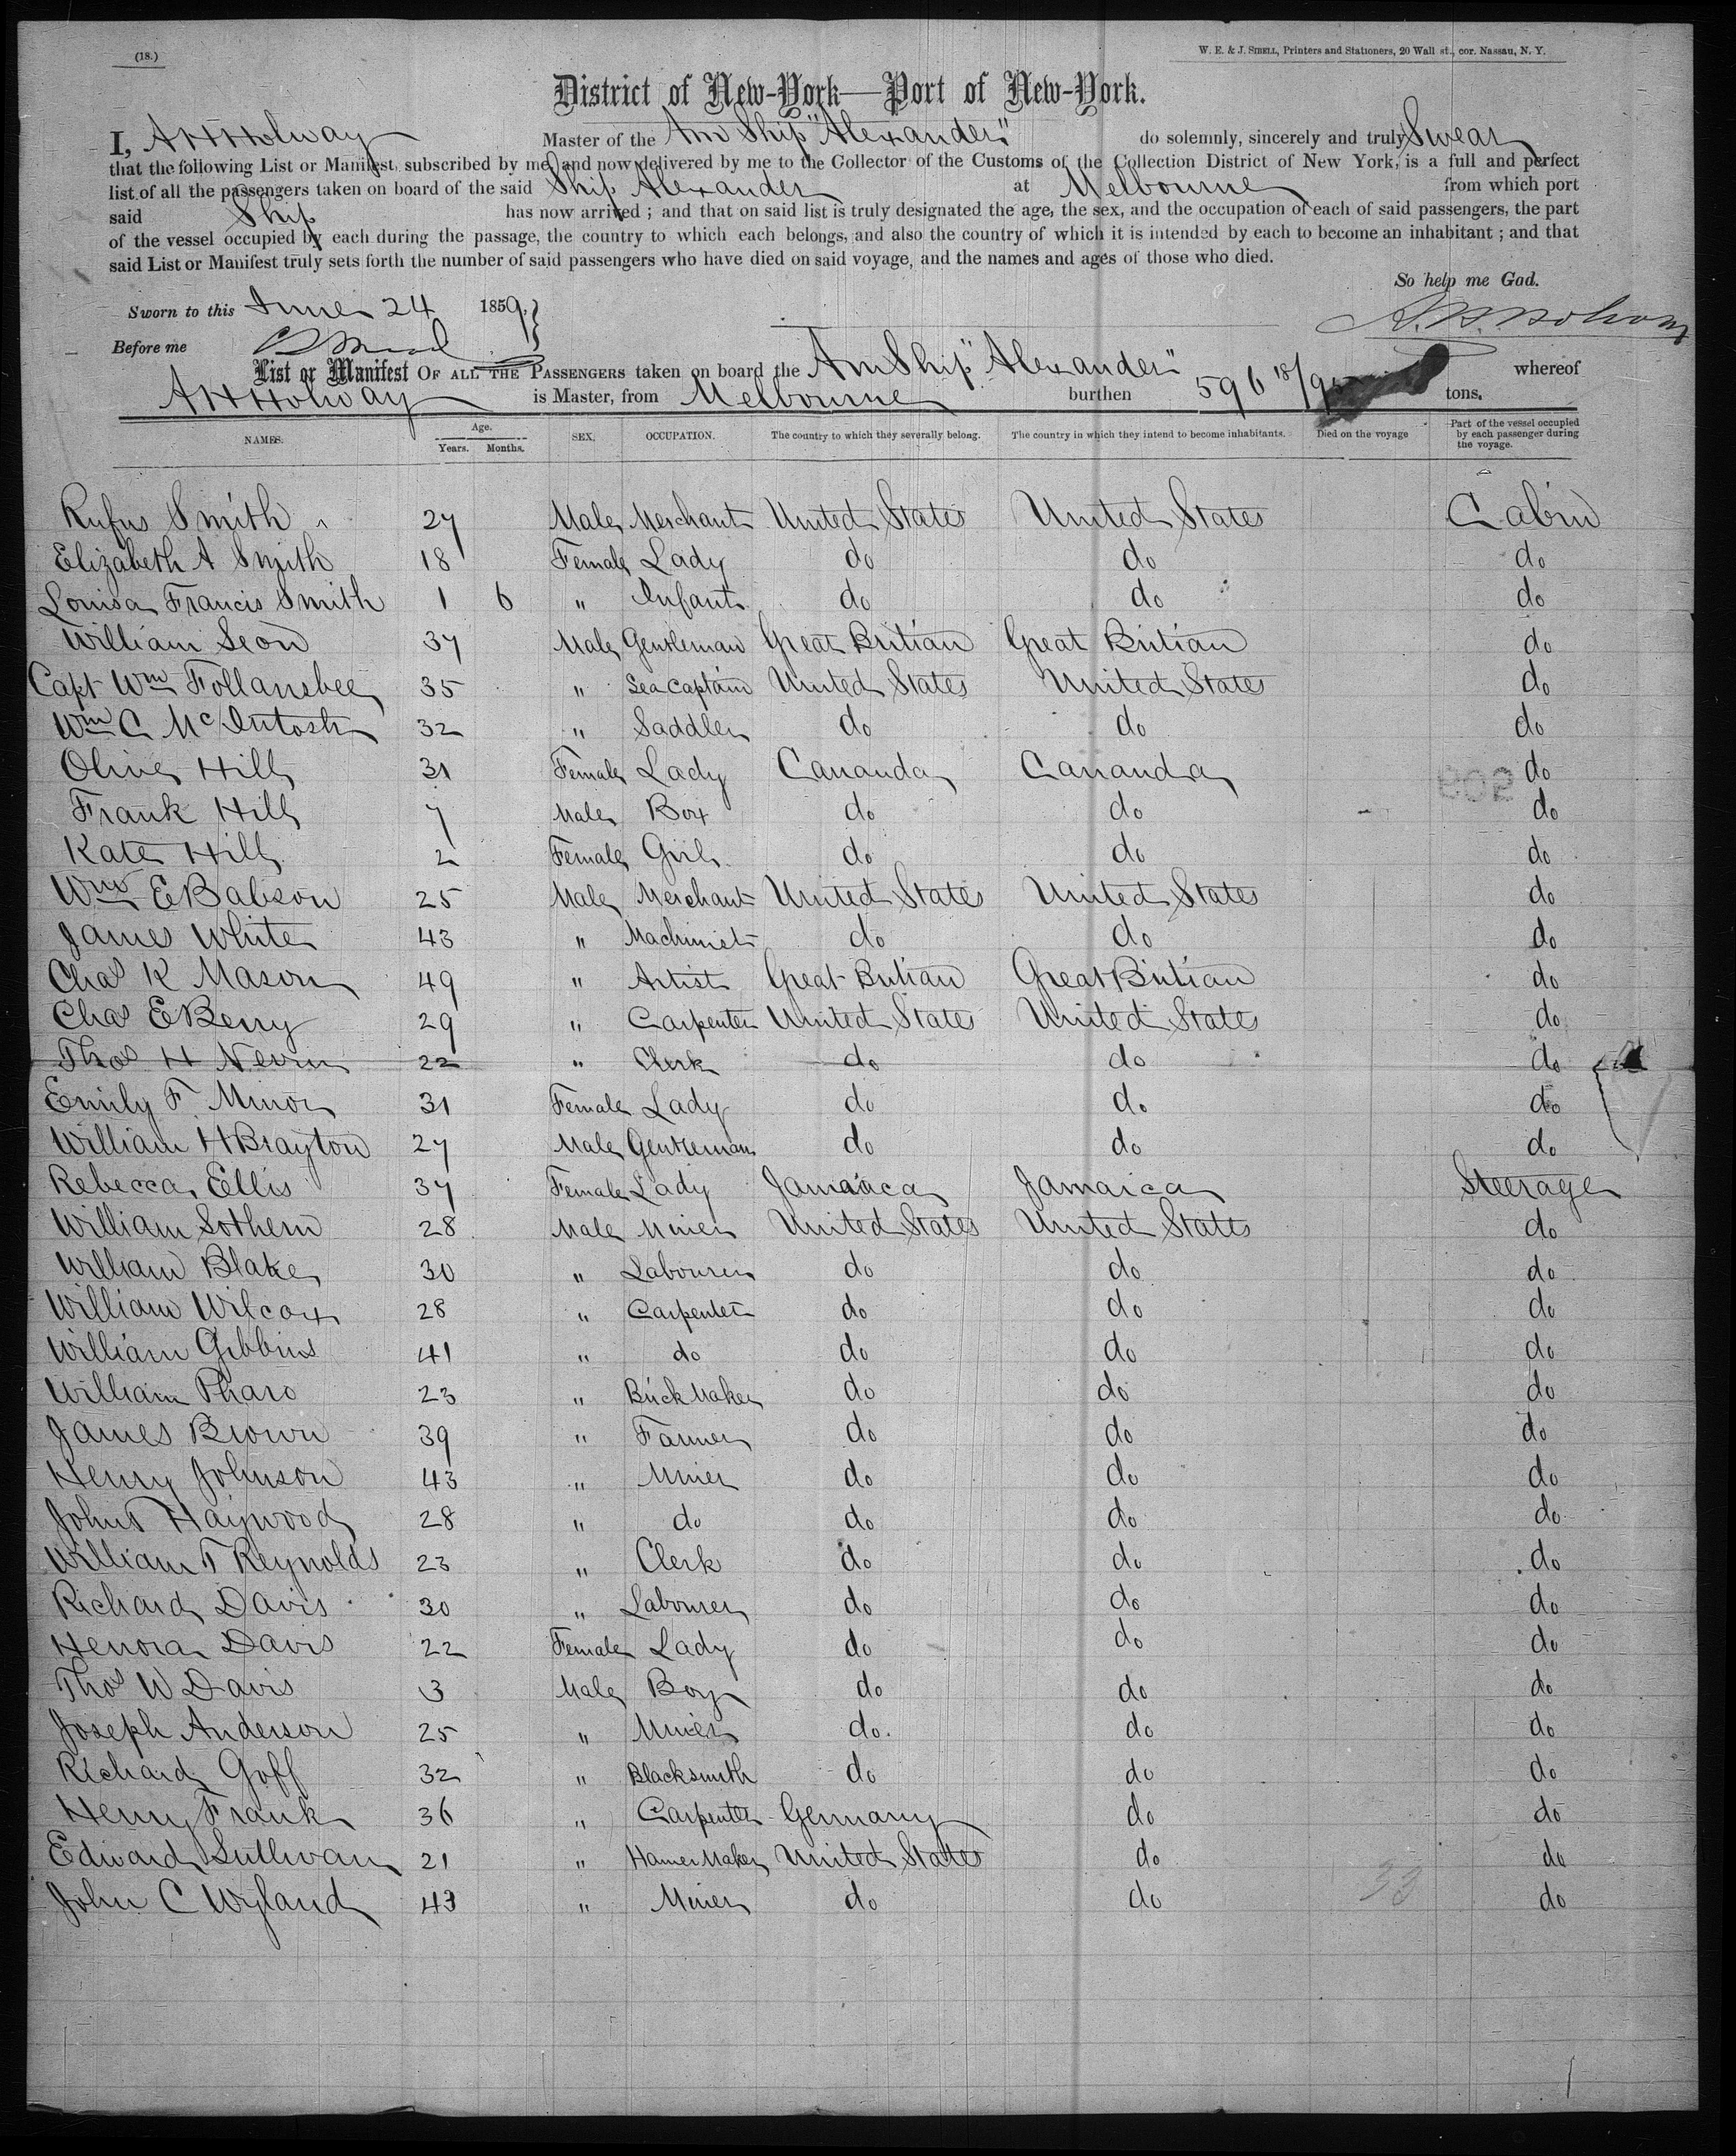 (18.)
W. E. & J. SIBELL, Printers and Stationers, 20 Wall st., cor. Nassau, N. Y.
District of New-York—Port of New-York.
I, A H Holway Master of the Am Ship "Alexander" do solemnly, sincerely and truly Swear
that the following List or Manifest, subscribed by me, and now delivered by me to the Collector of the Customs of the Collection District of New York, is a full and perfect
list of all the passengers taken on board of the said Ship Alexander at Melbourne from which port
said Ship has now arrived ; and that on said list is truly designated the age, the sex, and the occupation of each of said passengers, the part
of the vessel occupied by each during the passage, the country to which each belongs, and also the country of which it is intended by each to become an inhabitant ; and that
said List or Manifest truly sets forth the number of said passengers who have died on said voyage, and the names and ages of those who died.
So help me God.
Sworn to this June 24 1859.
A. H. Holway
Before me
List or Manifest OF ALL THE PASSENGERS taken on board the Am Ship "Alexander" whereof
A H Holway is Master, from Melbourne burthen 596 18/95 tons.
NAMES. Age. Years. Months. SEX. OCCUPATION. The country to which they severally belong. The country in which they intend to become inhabitants. Died on the voyage Part of the vessel occupied by each passenger during the voyage.
Rufus Smith 27 Male Merchant United States United States Cabin
Elizabeth A Smith 18 Female Lady do do do
Louisa Francis Smith 1 6 " Infant do do do
William Seon 37 Male Gentleman Great Britian Great Britian do
Capt Wm Follansbee 35 " Sea Captain United States United States do
Wm C McIntosh 32 " Saddler do do do
Olive Hill 31 Female Lady Cananda Cananda do
Frank Hill 7 Male Boy do do do
Kate Hill 2 Female Girl do do do
Wm E Balison 25 Male Merchant United States United States do
James White 43 " Machinist do do do
Chas K Mason 49 " Artist Great Britian Great Britian do
Chas E Berry 29 " Carpenter United States United States do
Thos H Nevin 22 " Clerk do do do
Emily F. Minor 31 Female Lady do do do
William H Brayton 27 Male Gentleman do do do
Rebecca Ellis 37 Female Lady Jamaica Jamaica Steerage
William Sothern 28 Male Miner United States United States do
William Blake 30 " Labourer do do do
William Wilcox 28 " Carpenter do do do
William Gibbins 41 " do do do do
William Pharo 23 " Brick Maker do do do
James Brown 39 " Farmer do do do
Henry Johnson 43 " Miner do do do
John T Haywood 28 " do do do do
William T Reynolds 23 " Clerk do do do
Richard Davis 30 " Labourer do do do
Henora Davis 22 Female Lady do do do
Thos W Davis 3 Male Boy do do do
Joseph Anderson 25 " Miner do. do do
Richard Goff 32 " Blacksmith do do do
Henry Frank 36 " Carpenter Germany do do
Edward Sullivan 21 " Harner Maker United States do do
John C Wyland 43 " Miner do do do
33